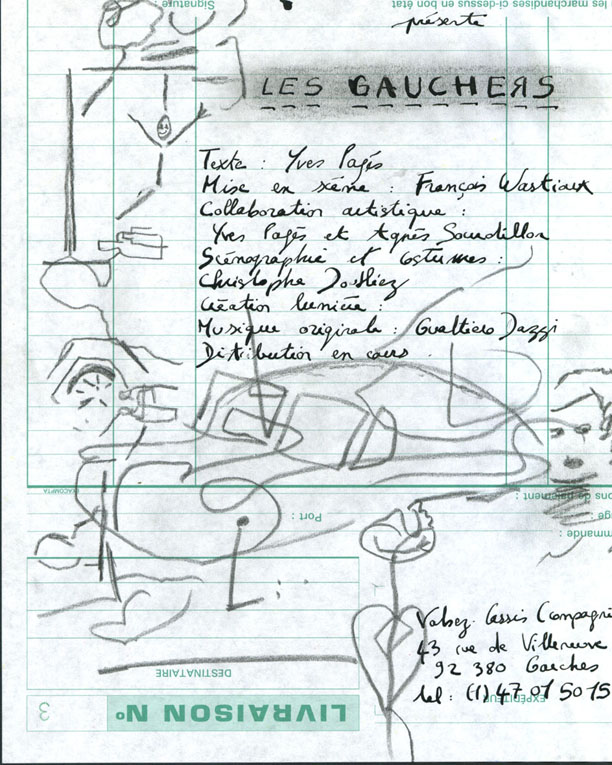 Signature :
les marchandises ci-dessus en bon état
présente
LES GAUCHERS
Texte : Yves Pagès
Mise en scène : François Wastiaux
Collaboration artistique :
Yves Pagès et Agnès Sourdillon
Scénographie et Costumes :
Christophe
Création lumière :
Musique originale : Gualtiero Dazzi
Distribution en cours
EXACOMPTA
ons de paiement :
Port :
ge :
ommande :
Valsez-Cassis Compagni
43 rue de Villeneuve
92 380 Garches
tel : (1) 47 01 50 15
EXPÉDITEUR
DESTINATAIRE
LIVRAISON N°
3